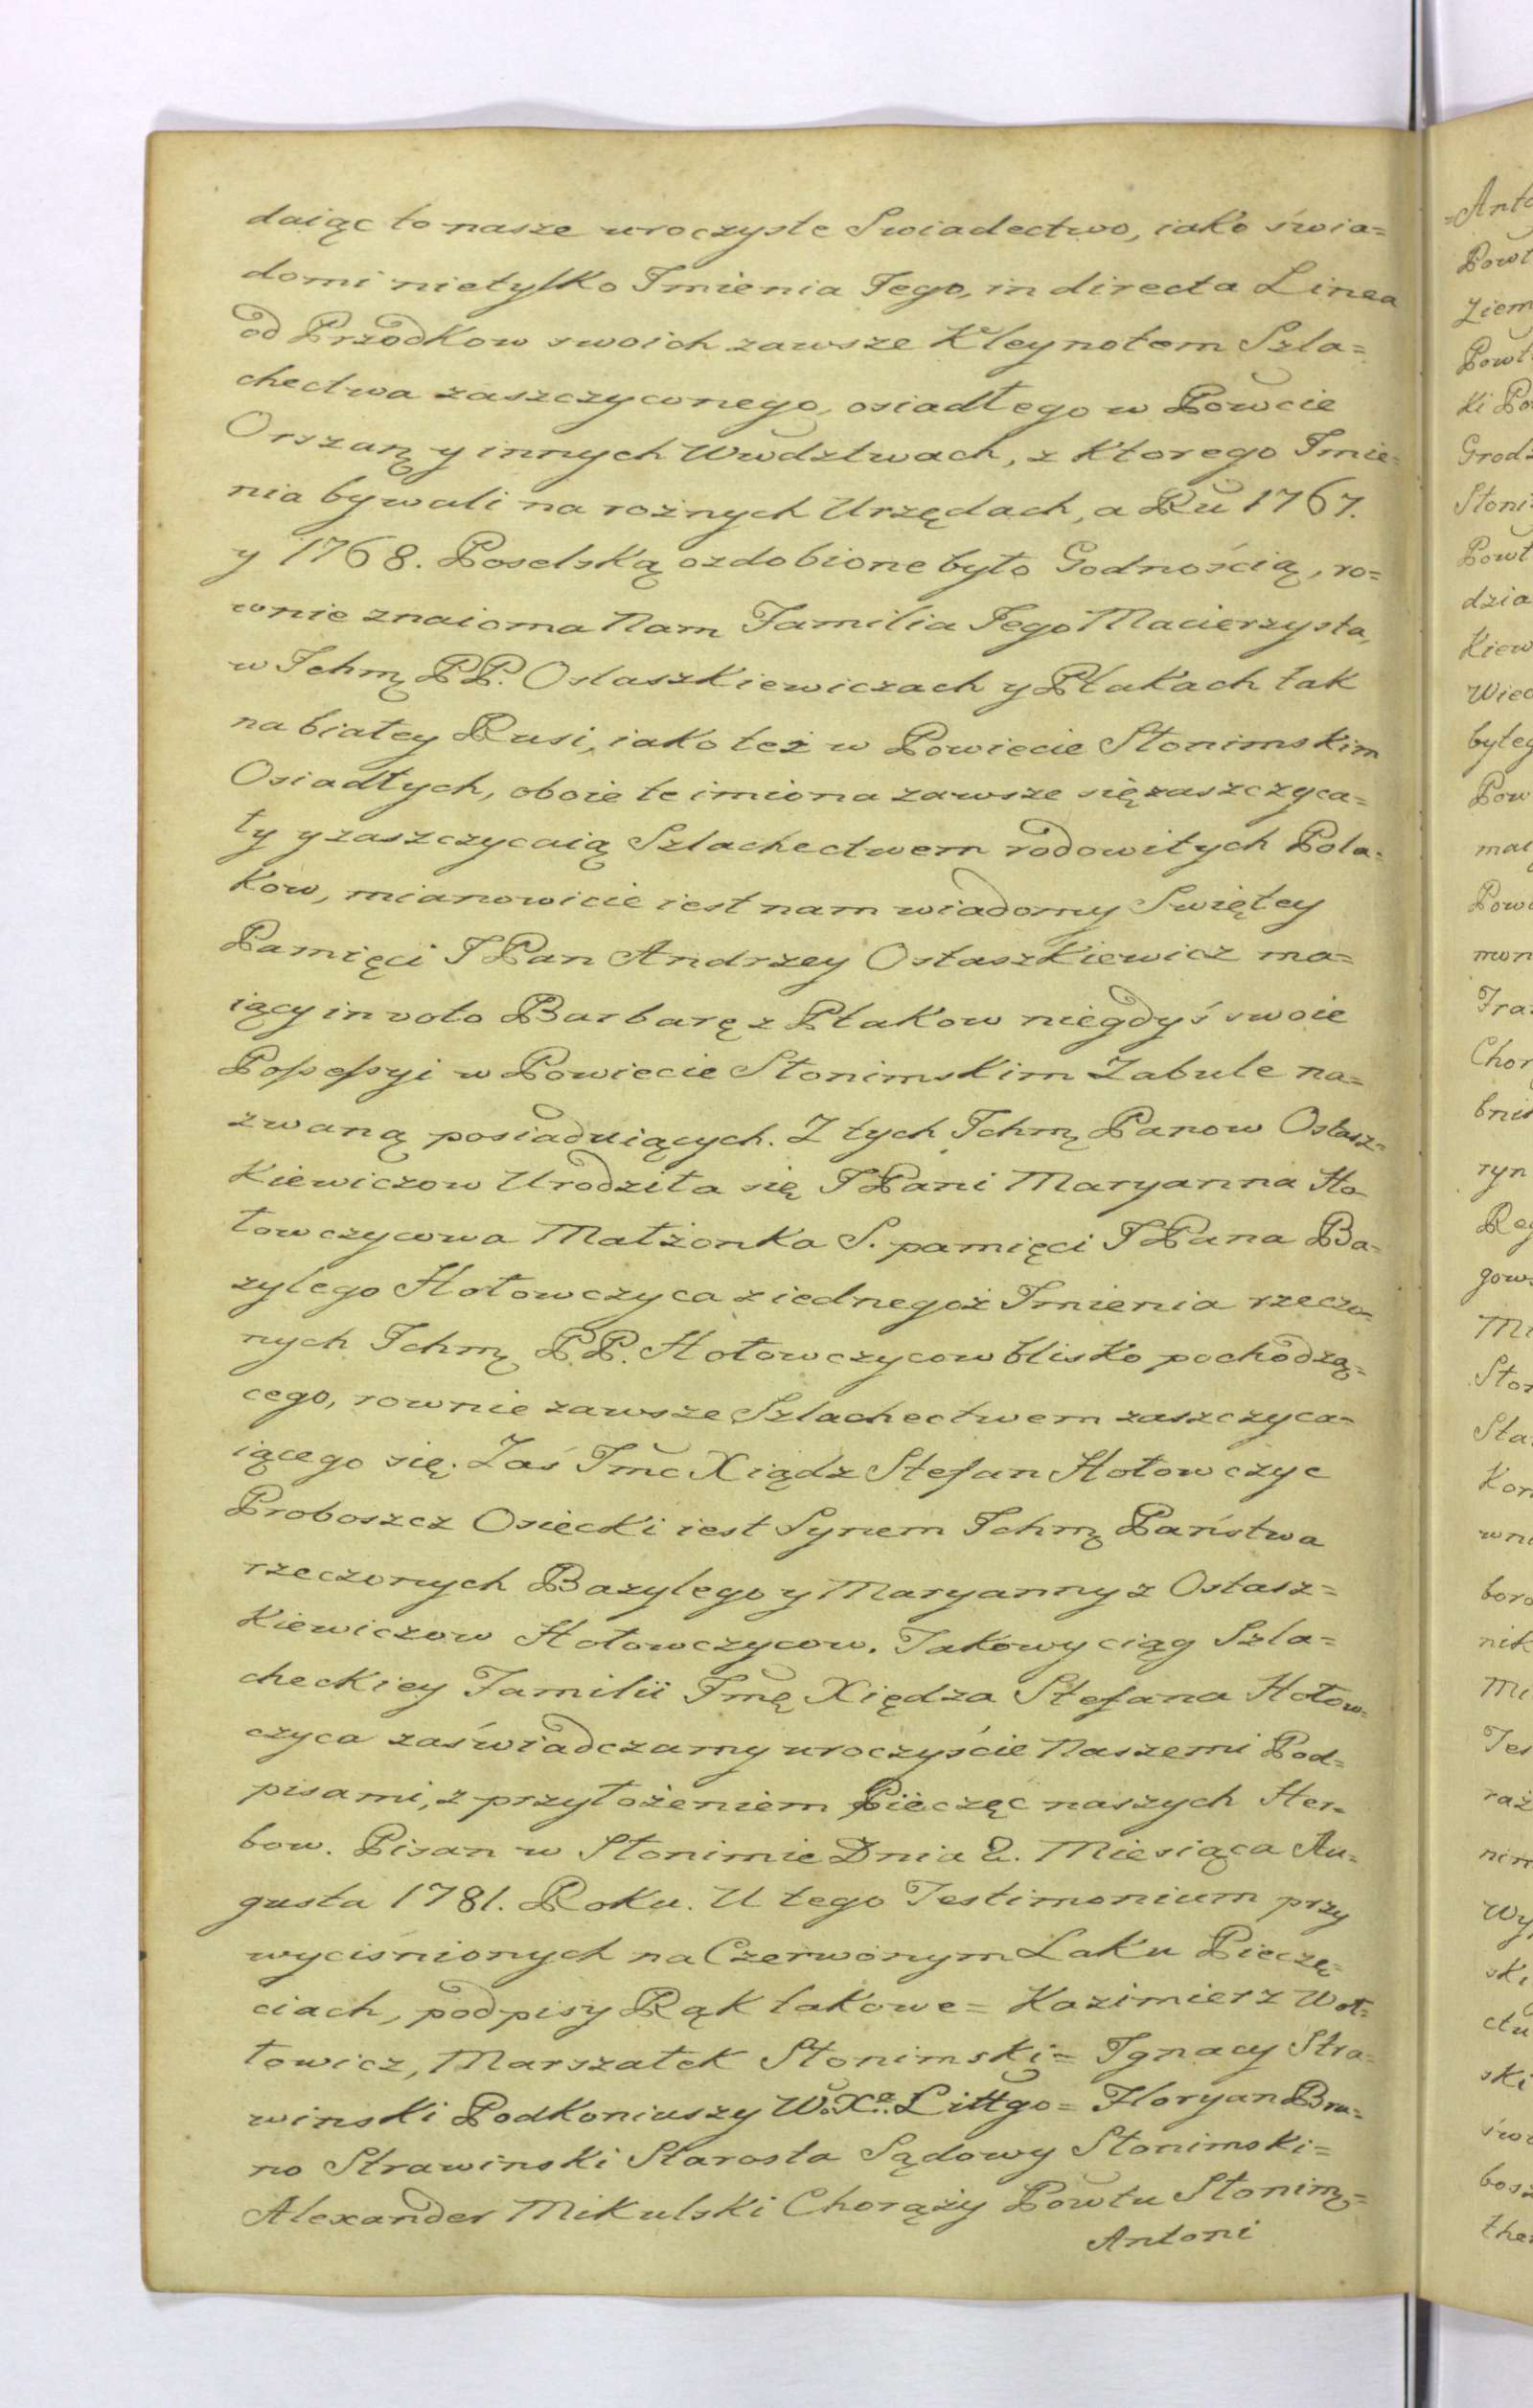 daiąc to nasze uroczyste Swiadectwo, iako świa=
domi nietylko Imienia Jego, in directa Linea
od Przodkow swoich zawsze Kleynotem Szla=
chectwa zaszczyconego, osiadłego w Powcie
Orszaṇ y innych Wwdztwach, z Ktorego Imie=
nia bywali na rożnych Urzędach, a Ru 1767.
y 1768. Poselską ozdobione było Godnością, ro=
wnie znaioma Nam Familia Jego Macierzysta,
w Ichm PP. Ostaszkiewiczach y Ptakach tak
na białey Rusi, iako też w Powiecie Słonimskim
Osiadłych, oboie te imiona zawsze się zaszczyca=
ły y zaszczycaią Szlachectwem rodowitych Pola=
kow, mianowicie iest nam wiadomy Swiętey
Pamięci JPan Andrzey Ostaszkiewicz ma=
iący in voto Barbarę z Ptakow niegdyś swoie
Possessyi w Powiecie Słonimskim Zabule na=
zwaną posiaduiących. Z tych Ichm Panow Ostasz=
kiewiczow Urodziła się JPani Maryanna Ho=
łowczycowa Małżonka S. pamięci JPana Ba=
zylego Hołowczyca z iednegoż Imienia rzeczo=
nych Ichm PP. Hołowczycow blisko pochodzą=
cego, rownie zawsze Szlachectwem zaszczyca=
iącego się. Zaś Jmc Xiądz Stefan Hołowczyc
Proboszcz Osiecki iest Synem Ichm Państwa
rzeczonych Bazylego y Maryanny z Ostasz=
kiewiczow Hołowczycow. Takowy ciąg Szla=
checkiey Familii Jmę Xiędza Stefana Hołow=
czyca zaświadczamy uroczyście Naszemi Pod=
pisami, z przyłożeniem Pieczęc naszych Her=
bow. Pisan w Słonimie Dnia 2. Miesiąca Au=
gusta 1781. Roku. U tego Testimonium przy
wyciśnionych na Czerwonym Laku Pieczę=
ciach, podpisy Rąk takowe = Kazimierz Woł=
łowicz, Marszałek Słonimski = Ignacy Stra=
winski Podkoniuszy W.X. Littgo = Floryan Bru=
no Strawinski Starosta Sądowy Słonimski =
Alexander Mikulski Chorąży Powtu Słonim =
Antoni